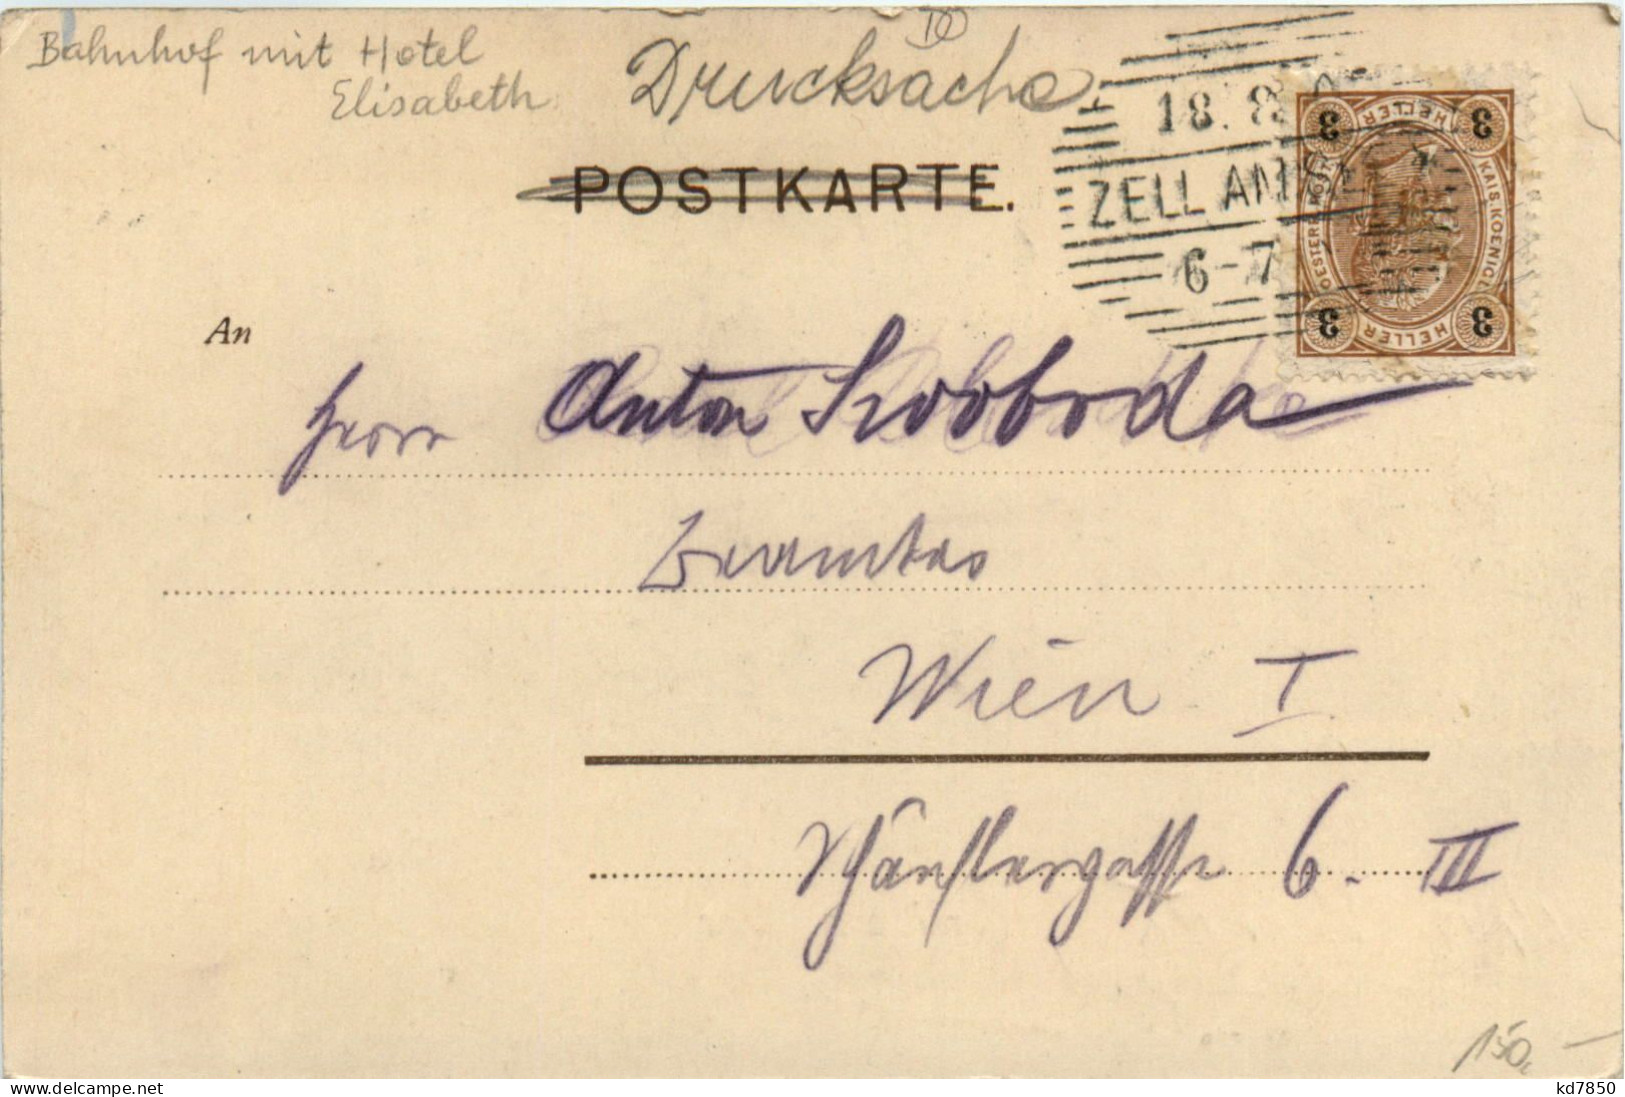 Bahnhof mit Hotel
Elisabeth
Drucksache
18. 8.
ZELL AM S
6-7
3 HELLER 3
KAIS. KOENIGL. OESTERR. POST
3 HELLER 3
POSTKARTE.
An
Herrn Anton Svoboda
Beamter
Wien I
Schänflergasse 6. III
150.-
www.delcampe.net
kd7850